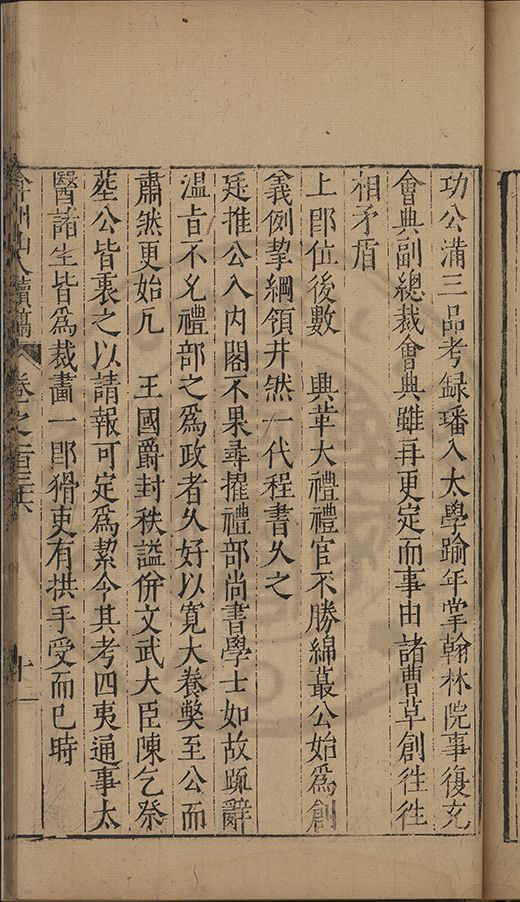 功公滿三品考録璠入太學踰年掌翰林院事復充
會典副總裁會典雖再更定而事由諸曹草創徃徃
相矛盾
上卽位後數　典革大禮禮官不勝綿蕞公始爲創
義例挈綱領井然一代程書久之
廷推公入内閣不果尋擢禮部尚書學士如故疏辭
温㫖不允禮部之爲政者久好以寛大養獘至公而
肅然更始凡　王國爵封秩謚併文武大臣陳乞祭
塟公皆裏之以請報可定爲絜令其考四夷通事太
醫諸生皆爲裁畫一卽猾吏有拱手受而已時
弇州山人續稿　卷之一百三十六　十一